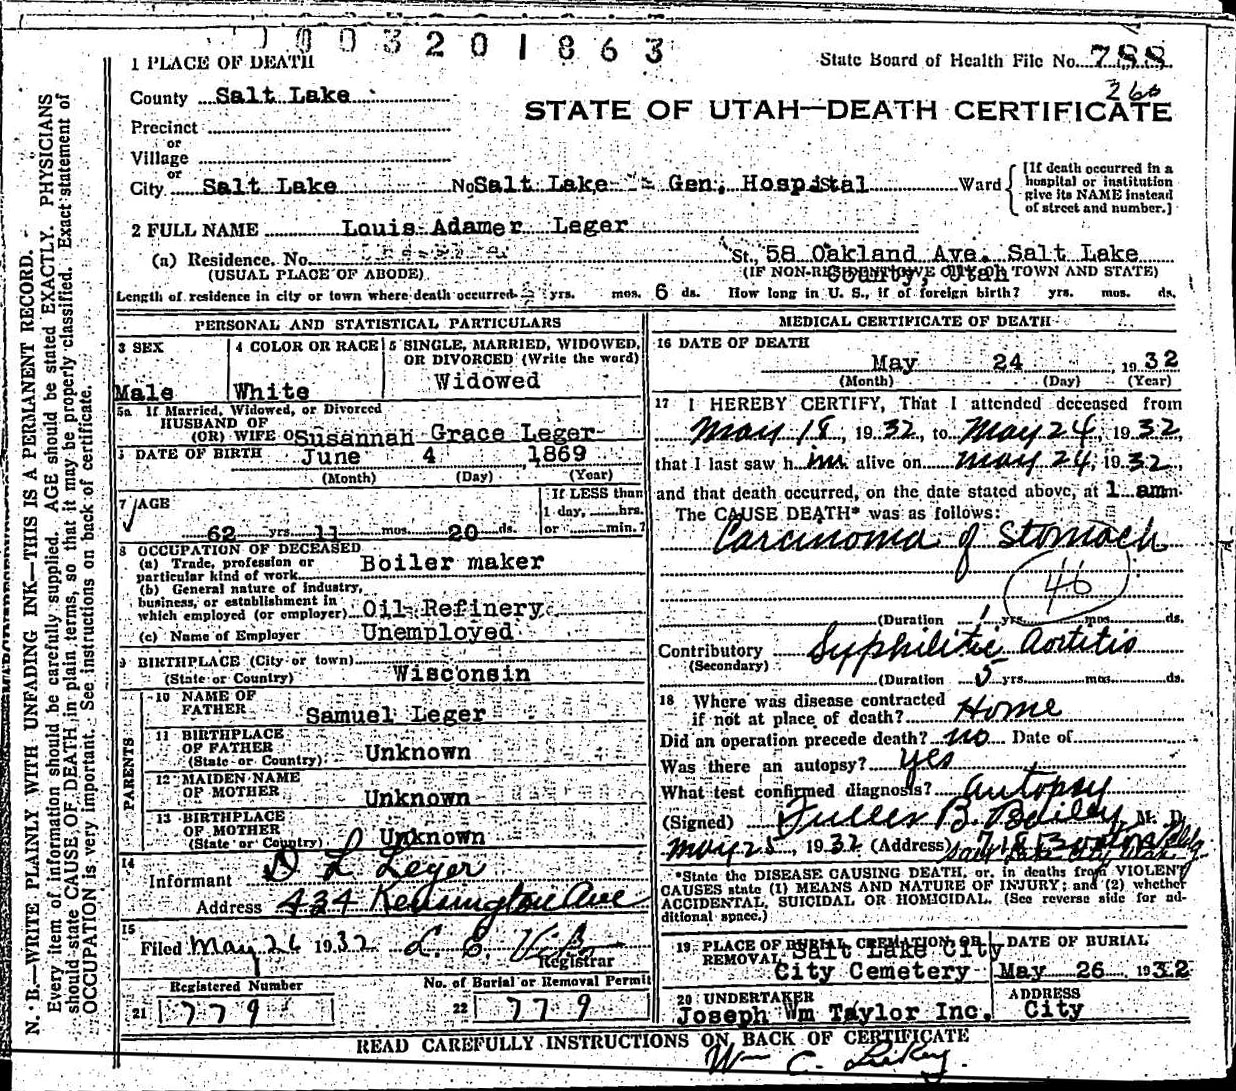 003201863
1 PLACE OF DEATH
State Board of Health File No. 788
260
County Salt Lake
STATE OF UTAH—DEATH CERTIFICATE
Precinct
or
Village
or
City Salt Lake No Salt Lake Gen. Hospital Ward
[If death occurred in a hospital or institution give its NAME instead of street and number.]
2 FULL NAME Louis Adamer Leger
(a) Residence. No. St., 58 Oakland Ave. Salt Lake County, Utah
(USUAL PLACE OF ABODE) (IF NON-RESIDENT GIVE CITY OR TOWN AND STATE)
Length of residence in city or town where death occurred yrs. mos. 6 ds. How long in U. S., if of foreign birth? yrs. mos. ds.
PERSONAL AND STATISTICAL PARTICULARS
3 SEX
Male
4 COLOR OR RACE
White
5 SINGLE, MARRIED, WIDOWED, OR DIVORCED (Write the word)
Widowed
5a If Married, Widowed, or Divorced
HUSBAND OF
(OR) WIFE OF Susannah Grace Leger
DATE OF BIRTH June 4 1869
(Month) (Day) (Year)
7 AGE
62 yrs. 11 mos. 20 ds.
If LESS than
1 day, hrs.
or min.?
8 OCCUPATION OF DECEASED
(a) Trade, profession or
particular kind of work Boiler maker
(b) General nature of industry,
business, or establishment in
which employed (or employer) Oil Refinery
(c) Name of Employer Unemployed
9 BIRTHPLACE (City or town)
(State or Country) Wisconsin
PARENTS
10 NAME OF
FATHER Samuel Leger
11 BIRTHPLACE
OF FATHER
(State or Country) Unknown
12 MAIDEN NAME
OF MOTHER Unknown
13 BIRTHPLACE
OF MOTHER
(State or Country) Unknown
14
Informant L Leger
Address 434 Kensington Ave
15
Filed May 26 1932
Registrar
Registered Number
21 779
No. of Burial or Removal Permit
22 779
MEDICAL CERTIFICATE OF DEATH
16 DATE OF DEATH
May 24, 1932
(Month) (Day) (Year)
17 I HEREBY CERTIFY, That I attended deceased from
May 18, 1932, to May 24, 1932,
that I last saw him alive on May 24, 1932,
and that death occurred, on the date stated above, at 1 am m.
The CAUSE DEATH* was as follows:
Carcinoma of Stomach
46
(Duration 1 yrs. mos. ds.
Contributory Syphilitic Aortitis
(Secondary)
(Duration 5 yrs. mos. ds.
18 Where was disease contracted
if not at place of death? Home
Did an operation precede death? no Date of
Was there an autopsy? yes
What test confirmed diagnosis? Autopsy
(Signed) Fuller B. Bailey, M. D.
May 25, 1932 (Address) 718 Boston Bldg.
Salt Lake City Utah
*State the DISEASE CAUSING DEATH, or, in deaths from VIOLENT
CAUSES state (1) MEANS AND NATURE OF INJURY; and (2) whether
ACCIDENTAL, SUICIDAL OR HOMICIDAL. (See reverse side for ad-
ditional space.)
19 PLACE OF BURIAL CREMATION OR
REMOVAL Salt Lake City
City Cemetery
DATE OF BURIAL
May 26, 1932
20 UNDERTAKER
Joseph Wm Taylor Inc.
ADDRESS
City
READ CAREFULLY INSTRUCTIONS ON BACK OF CERTIFICATE
Wm C.
N. B.—WRITE PLAINLY WITH UNFADING INK—THIS IS A PERMANENT RECORD.
Every item of information should be carefully supplied. AGE should be stated EXACTLY. PHYSICIANS
should state CAUSE OF DEATH in plain terms, so that it may be properly classified. Exact statement of
OCCUPATION is very important. See instructions on back of certificate.